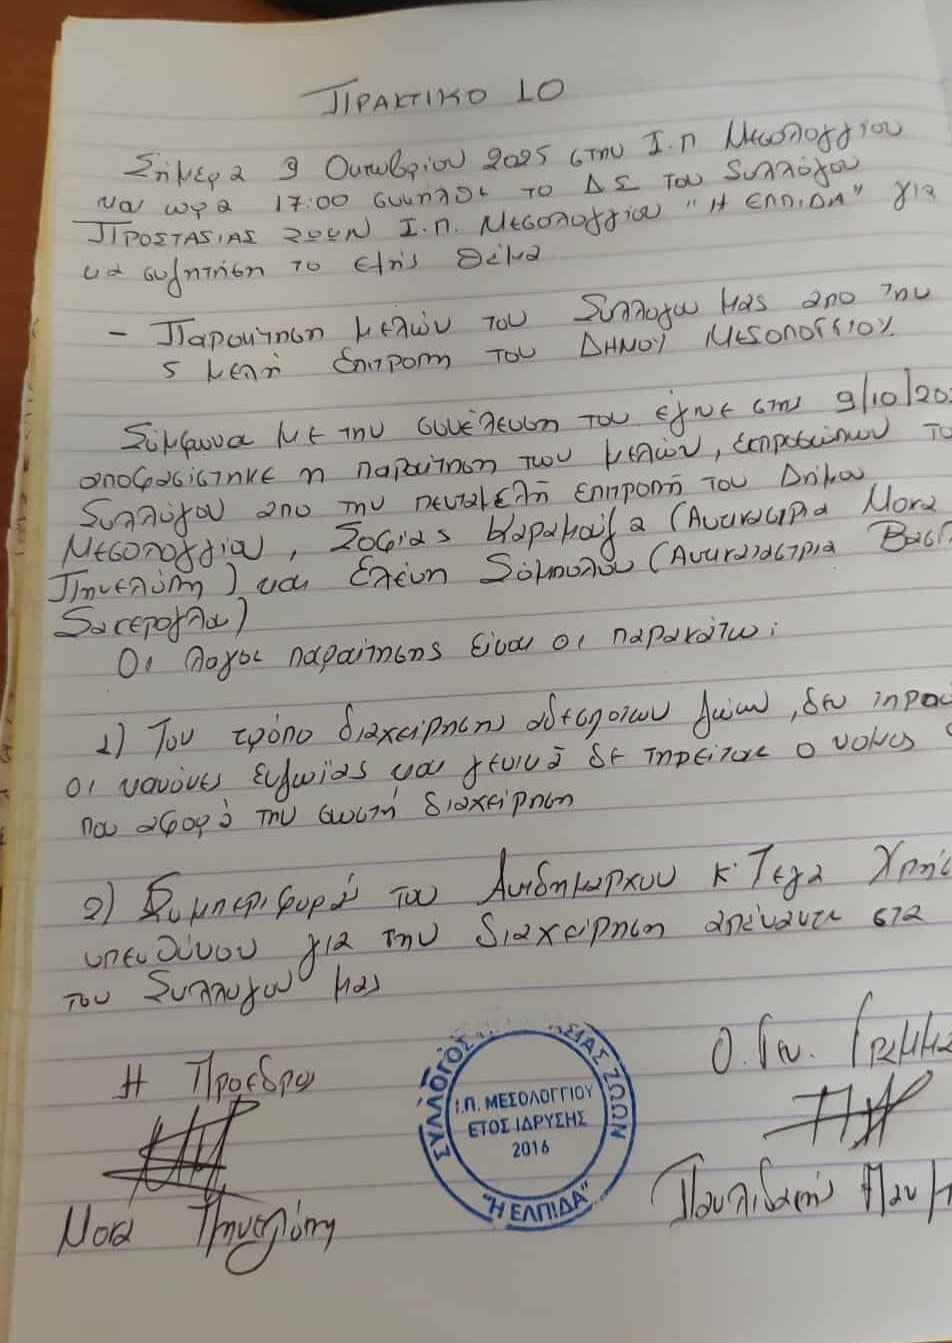 ΠΡΑΚΤΙΚΟ 10
Σήμερα 9 Οκτωβρίου 2025 στην Ι.Π Μεσολογγίου
και ωρα 17:00 συνήλθε το ΔΣ του Συλλόγου
ΠΡΟΣΤΑΣΙΑΣ ΖΩΩΝ Ι.Π. ΜΕσολογγίου "Η ΕΛΠΙΔΑ" για
να συζητήση το εξής θέμα
- Παραίτηση μελών του Συλλογου μας απο την
5 μελή επιτροπη του ΔΗΜΟΥ ΜΕΣΟΛΟΓΓΙΟΥ.
Σύμφωνα με την συνέλευση που έγινε στης 9/10/20
αποφασίστηκε η παραίτηση των μελών, εκπροσώπων το
Συλλόγου απο την πενταμελή επιτροπή του Δήμου
Μεσολογγίου, Σοφίας Καραμούζα (Αναπληρώτρια Μοκα
Πηνελόπη) και Ελένη Σύμπολου (Αναπληρώτρια Βασι
Οι λογοι παραίτησης είναι οι παρακάτω:
1) Τον τρόπο διαχείρησης αδεσποτων ζώων, δεν τηρού
οι κανόνες ευζωϊας και γενικά δε τηρείται ο νομος
που αφορά την σωστή διαχείρηση
2) Συμπεριφορά του Αντιδημαρχου κ' Τεγα Χρήσ
υπευθύνου για την διαχείρηση απέναντι στα
του Συλλογου μας
Η Προεδρος
Ο. Γεν. Γραμμα
ΣΥΛΛΟΓΟΣ ΣΙΑΣ ΖΩΩΝ
Ι.Π. ΜΕΣΟΛΟΓΓΙΟΥ
ΕΤΟΣ ΙΔΡΥΣΗΣ
2016
"Η ΕΛΠΙΔΑ"
Μοκα Πηνελόπη
Παυλιδακης